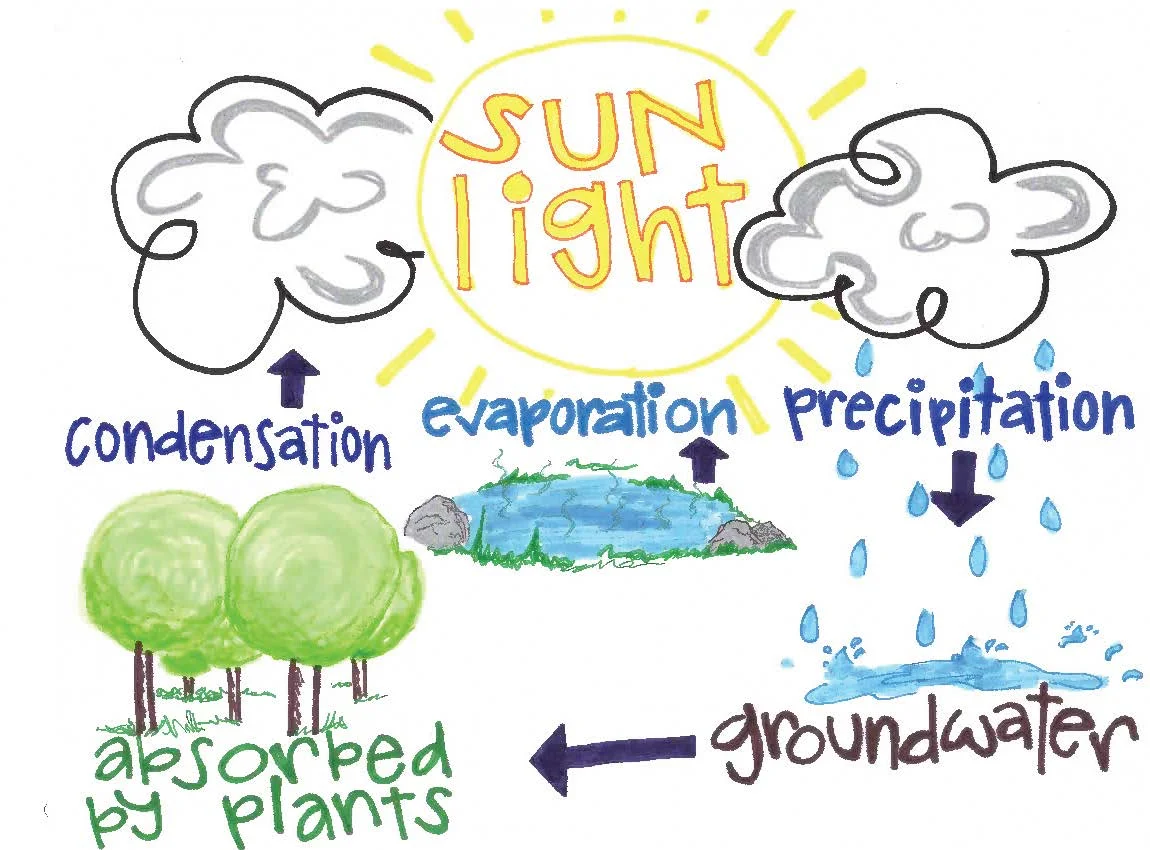 SUN
light
condensation
evaporation
precipitation
groundwater
absorbed
by plants